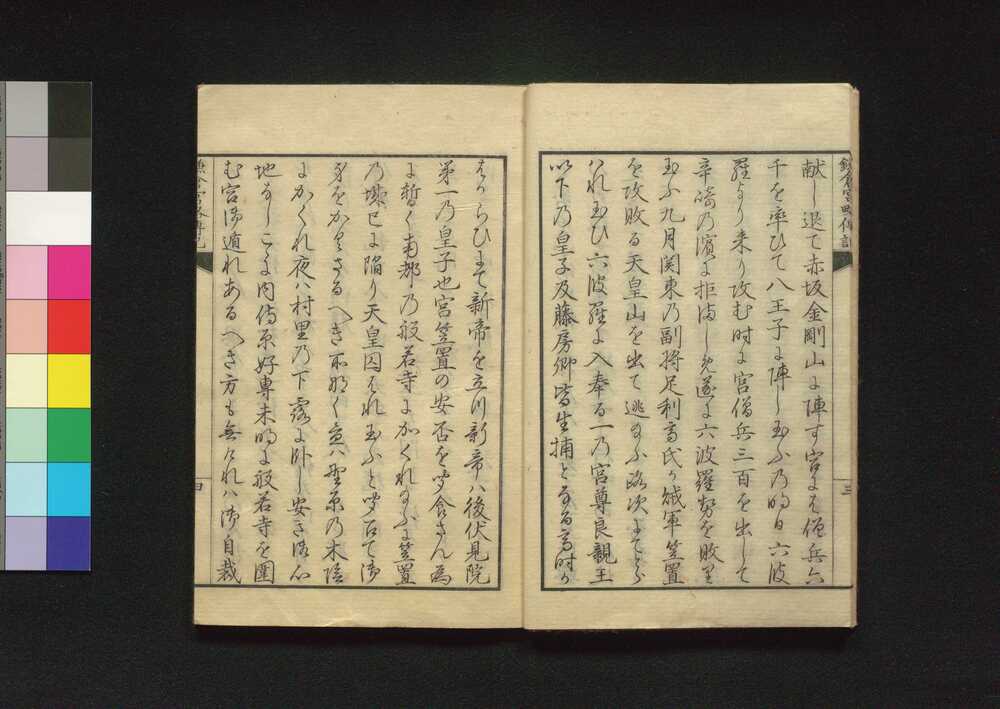 鎌倉宮略傳記
献し退て赤坂金剛山に陣す宮には僧兵六
千を率ひて八王子に陣し玉ふ乃明日六波
羅より来り攻む時に宮僧兵三百を出して
辛崎乃濱に拒ましめ遂に六波羅勢を敗り
玉ふ九月関東乃副将足利高氏か賊軍笠置
を攻敗る天皇山を出て逃玉ふ路次にてとら
はれ玉ひ六波羅に入奉る一乃宮尊良親王
以下乃皇子及藤房卿皆生捕となる高時か
三
はからひにて新帝を立川新帝ハ後伏見院
第一乃皇子也宮笠置の安否を聞食さん為
に暫く南都乃般若寺にかくれ玉ふに笠置
乃城已に陥り天皇囚はれ玉ふと聞召て御
身をかくさるへき所なく昼ハ野原乃木陰
にかくれ夜ハ村里乃下露に卧し安き御心
地なしこゝに内侍原好専未明に般若寺を圍
む宮御遁れあるへき方も無けれハ御自裁
鎌倉宮略傳記
四